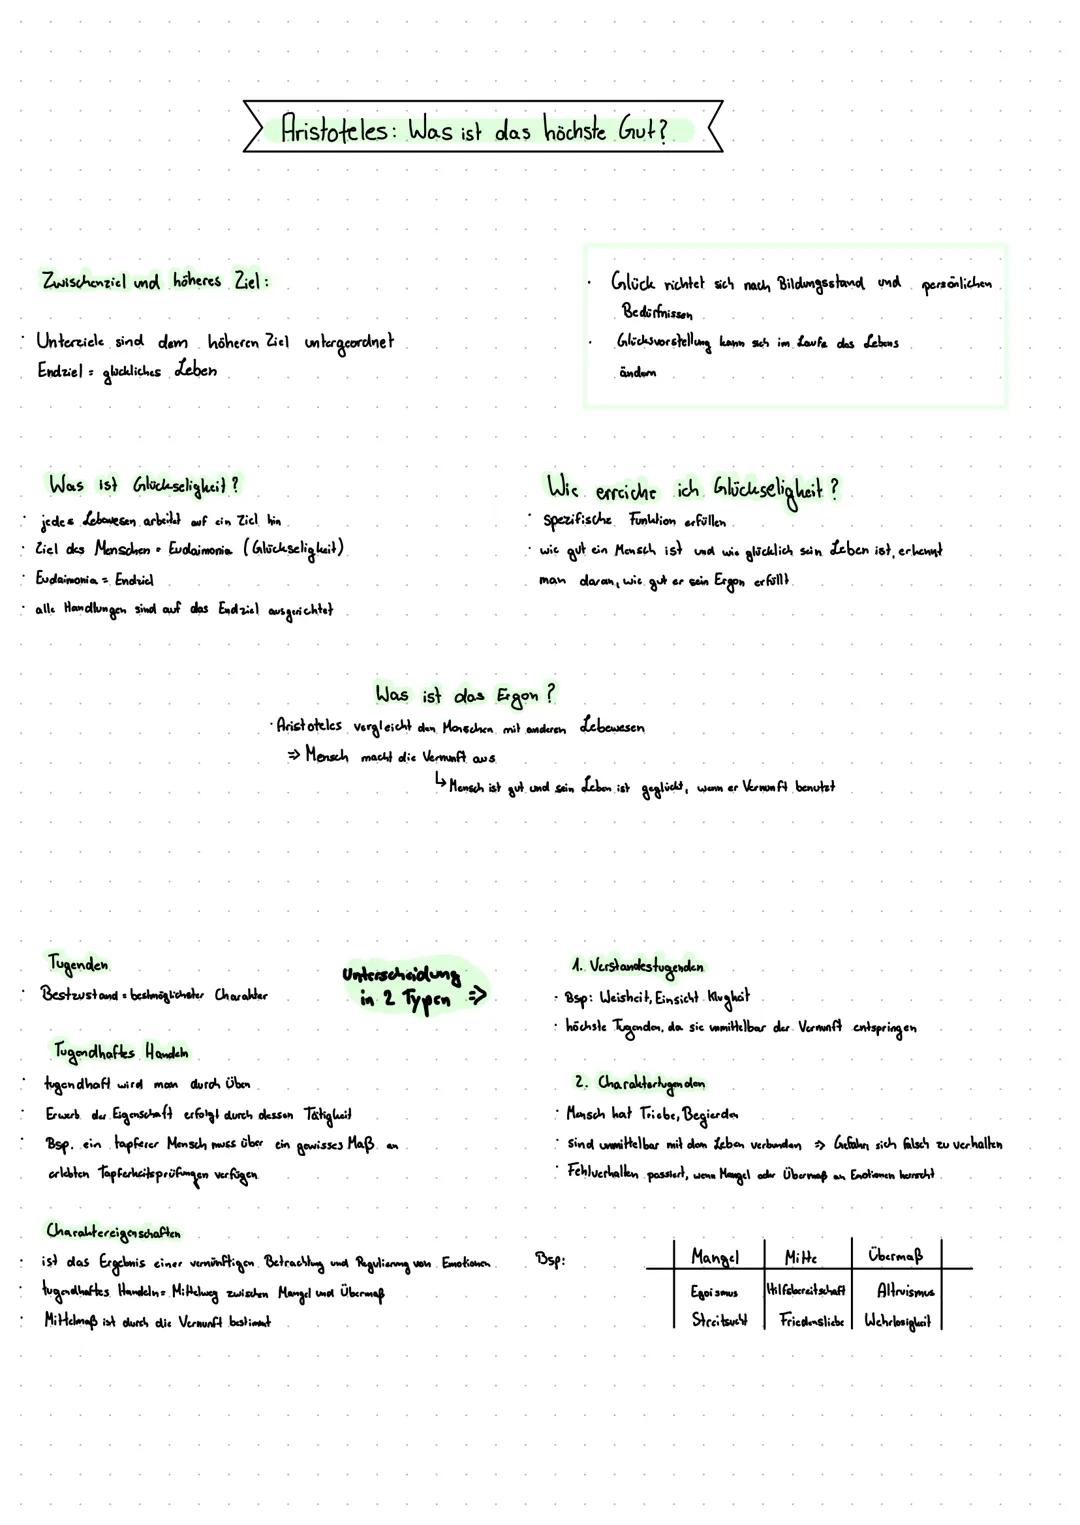 Aristoteles: Was ist das höchste Gut?
Zwischenziel und höheres Ziel:
· Unterziele sind dem höheren Ziel untergeordnet
Endziel = glückliches Leben
· Glück richtet sich nach Bildungsstand und persönlichen
Bedürfnissen
· Glücksvorstellung kann sich im Laufe des Lebens
ändern
Was ist Glückseligkeit?
· jedes Lebewesen arbeitet auf ein Ziel hin
· Ziel des Menschen = Eudaimonia (Glückseligkeit)
· Eudaimonia = Endziel
· alle Handlungen sind auf das Endziel ausgerichtet
Wie erreiche ich Glückseligkeit?
· spezifische Funktion erfüllen
· wie gut ein Mensch ist und wie glücklich sein Leben ist, erkennt
man daran, wie gut er sein Ergon erfüllt
Was ist das Ergon?
· Aristoteles vergleicht den Menschen mit anderen Lebewesen
⇒ Mensch macht die Vernunft aus
↳ Mensch ist gut und sein Leben ist geglückt, wenn er Vernunft benutzt
Tugenden
· Bestzustand = bestmöglichster Charakter
Unterscheidung
in 2 Typen ⇒
Tugendhaftes Handeln
· tugendhaft wird man durch Üben
· Erwerb der Eigenschaft erfolgt durch dessen Tätigkeit
· Bsp. ein tapferer Mensch muss über ein gewisses Maß an
erlebten Tapferkeitsprüfungen verfügen
Charaktereigenschaften
· ist das Ergebnis einer vernünftigen Betrachtung und Regulierung von Emotionen
· tugendhaftes Handeln = Mittelweg zwischen Mangel und Übermaß
· Mittelmaß ist durch die Vernunft bestimmt
1. Verstandestugenden
· Bsp: Weisheit, Einsicht Klugheit
· höchste Tugenden, da sie unmittelbar der Vernunft entspringen
2. Charaktertugenden
· Mensch hat Triebe, Begierden
· sind unmittelbar mit dem Leben verbunden ⇒ Gefahr, sich falsch zu verhalten
· Fehlverhalten passiert, wenn Mangel oder Übermaß an Emotionen herrscht
Bsp:
Mangel Mitte Übermaß
Egoismus Hilfsbereitschaft Altruismus
Streitsucht Friedensliebe Wehrlosigkeit